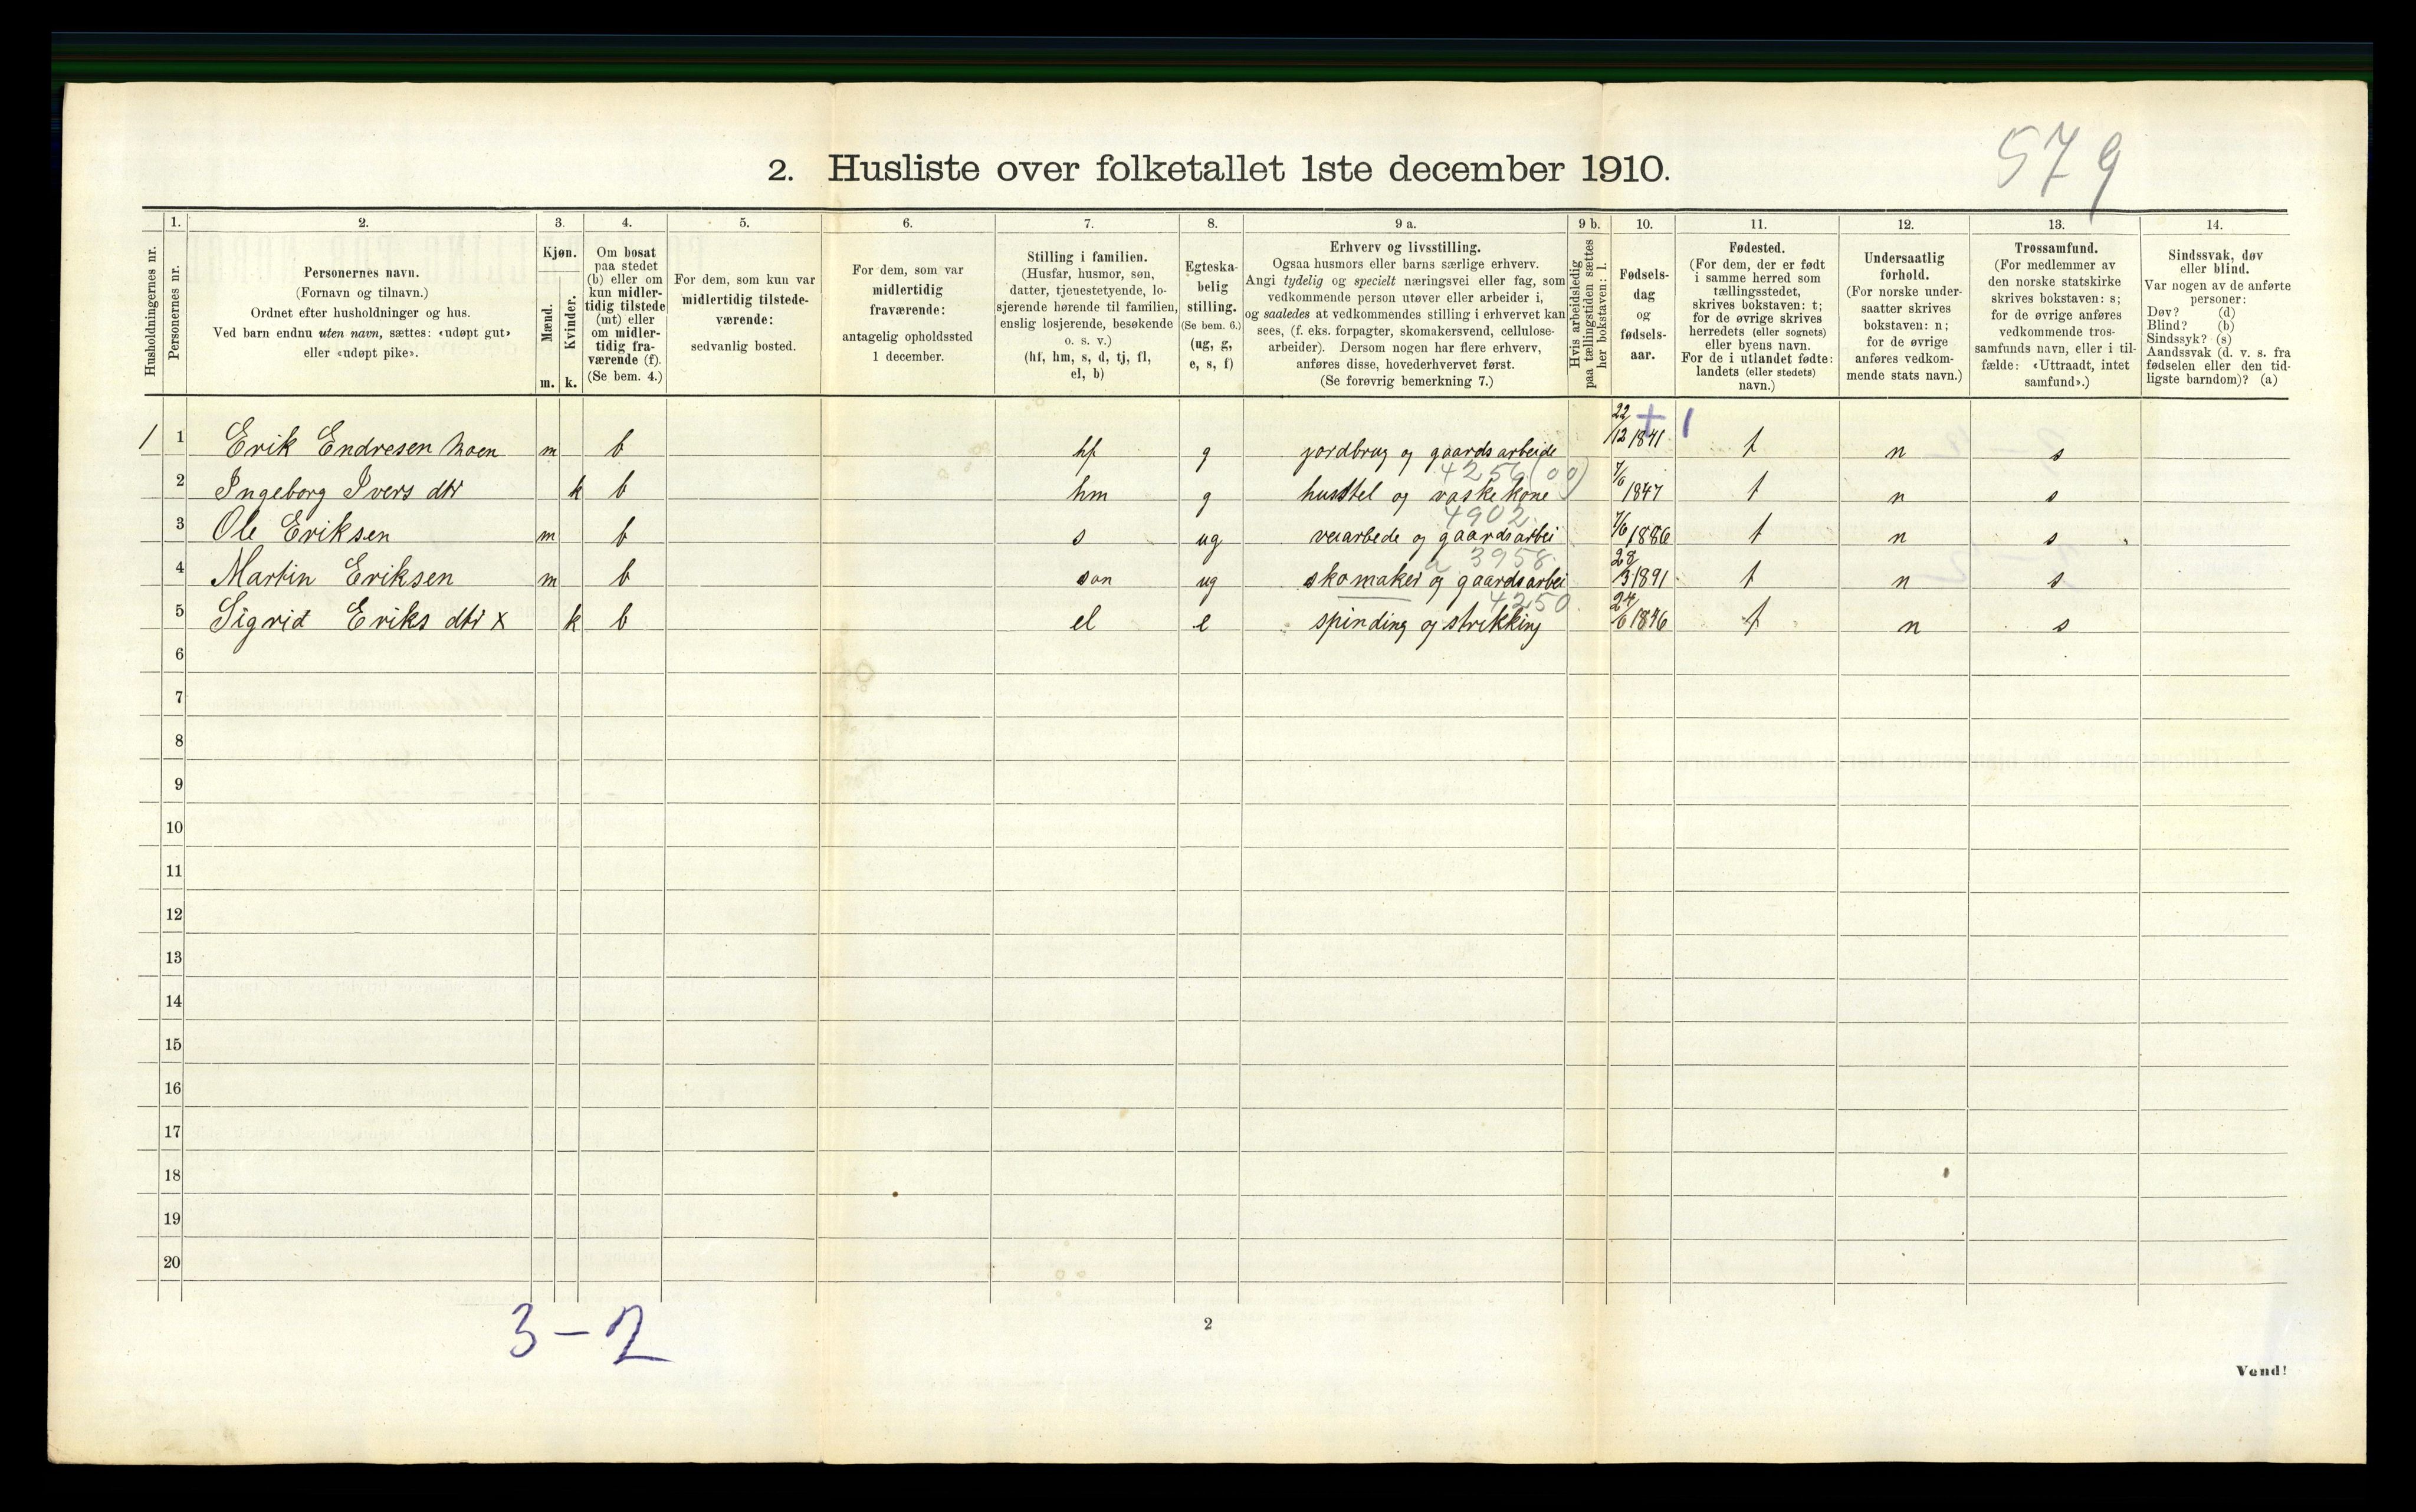 579
2. Husliste over folketallet 1ste december 1910.
1. 2. 3. 4. 5. 6. 7. 8. 9 a. 9 b. 10. 11. 12. 13. 14.
Husholdningernes nr.
Personernes nr.
Personernes navn.
(Fornavn og tilnavn.)
Ordnet efter husholdninger og hus.
Ved barn endnu uten navn, sættes: «udøpt gut»
eller «udøpt pike».
Kjøn.
Mænd.
Kvinder.
m. k.
Om bosat
paa stedet
(b) eller om
kun midler-
tidig tilstede
(mt) eller
om midler-
tidig fra-
værende (f).
(Se bem. 4.)
For dem, som kun var
midlertidig tilstede-
værende:
sedvanlig bosted.
For dem, som var
midlertidig
fraværende:
antagelig opholdssted
1 december.
Stilling i familien.
(Husfar, husmor, søn,
datter, tjenestetyende, lo-
sjerende hørende til familien,
enslig losjerende, besøkende
o. s. v.)
(hf, hm, s, d, tj, fl,
el, b)
Egteska-
belig
stilling.
(Se bem. 6.)
(ug, g,
e, s, f)
Erhverv og livsstilling.
Ogsaa husmors eller barns særlige erhverv.
Angi tydelig og specielt næringsvei eller fag, som
vedkommende person utøver eller arbeider i,
og saaledes at vedkommendes stilling i erhvervet kan
sees, (f. eks. forpagter, skomakersvend, cellulose-
arbeider). Dersom nogen har flere erhverv,
anføres disse, hovederhvervet først.
(Se forøvrig bemerkning 7.)
Hvis arbeidsledig
paa tællingstiden sættes
her bokstaven: l.
Fødsels-
dag
og
fødsels-
aar.
Fødested.
(For dem, der er født
i samme herred som
tællingsstedet,
skrives bokstaven: t;
for de øvrige skrives
herredets (eller sognets)
eller byens navn.
For de i utlandet fødte:
landets (eller stedets)
navn.)
Undersaatlig
forhold.
(For norske under-
saatter skrives
bokstaven: n;
for de øvrige
anføres vedkom-
mende stats navn.)
Trossamfund.
(For medlemmer av
den norske statskirke
skrives bokstaven: s;
for de øvrige anføres
vedkommende tros-
samfunds navn, eller i til-
fælde: «Uttraadt, intet
samfund».)
Sindssvak, døv
eller blind.
Var nogen av de anførte
personer:
Døv? (d)
Blind? (b)
Sindssyk? (s)
Aandssvak (d. v. s. fra
fødselen eller den tid-
ligste barndom)? (a)
1 1 Erik Endresen Moen m b hf g jordbrug og gaardsarbeide 22/12 1841 + 1 t n s
4256 (00)
2 Ingeborg Ivers dtr k b hm g husstel og vaskekone 7/6 1847 t n s
4902
3 Ole Eriksen m b s ug veiarbede og gaardsarbei 7/6 1886 t n s
a 3958
4 Martin Eriksen m b son ug skomaker og gaardsarbei 28/3 1891 t n s
4250
5 Sigrid Eriks dtr x k b el e spinding og strikking 24/6 1846 t n s
6
7
8
9
10
11
12
13
14
15
16
17
18
19
20
3 - 2
2
Vend!